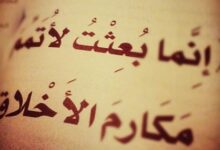 إِنَّمَا بُعِثْتُ لأُتَمِّ
مَكَارِمَ الأَخْلاق